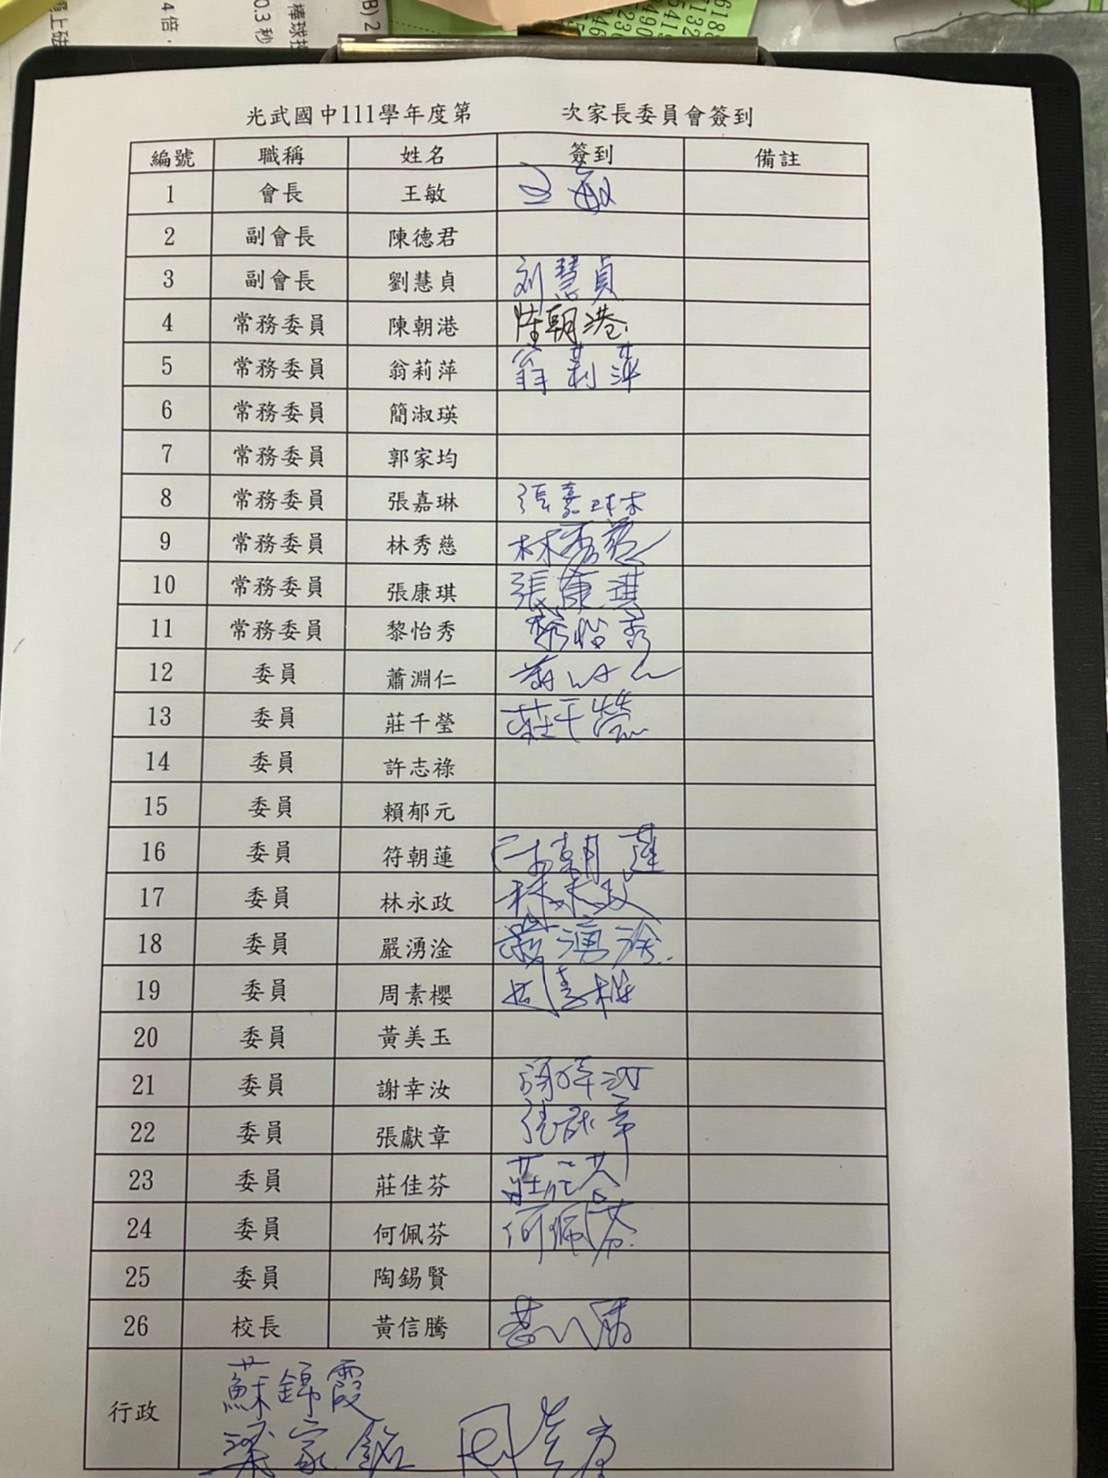 光武國中111學年度第 次家長委員會簽到
編號 職稱 姓名 簽到 備註
1 會長 王敏 王敏
2 副會長 陳德君
3 副會長 劉慧貞 刘慧貞
4 常務委員 陳朝港 陸朝港
5 常務委員 翁莉萍 翁莉萍
6 常務委員 簡淑瑛
7 常務委員 郭家均
8 常務委員 張嘉琳 張嘉琳
9 常務委員 林秀慈 林秀慈
10 常務委員 張康琪 張康琪
11 常務委員 黎怡秀 黎怡秀
12 委員 蕭淵仁
13 委員 莊千瑩 莊千瑩
14 委員 許志祿
15 委員 賴郁元
16 委員 符朝蓮 符朝蓮
17 委員 林永政 林永政
18 委員 嚴湧淦 嚴湧淦
19 委員 周素櫻 周素櫻
20 委員 黃美玉
21 委員 謝幸汝 謝幸汝
22 委員 張獻章 張獻章
23 委員 莊佳芬 莊佳芬
24 委員 何佩芬 何佩芬
25 委員 陶錫賢
26 校長 黃信騰
行政 蘇錦霞
梁家銘